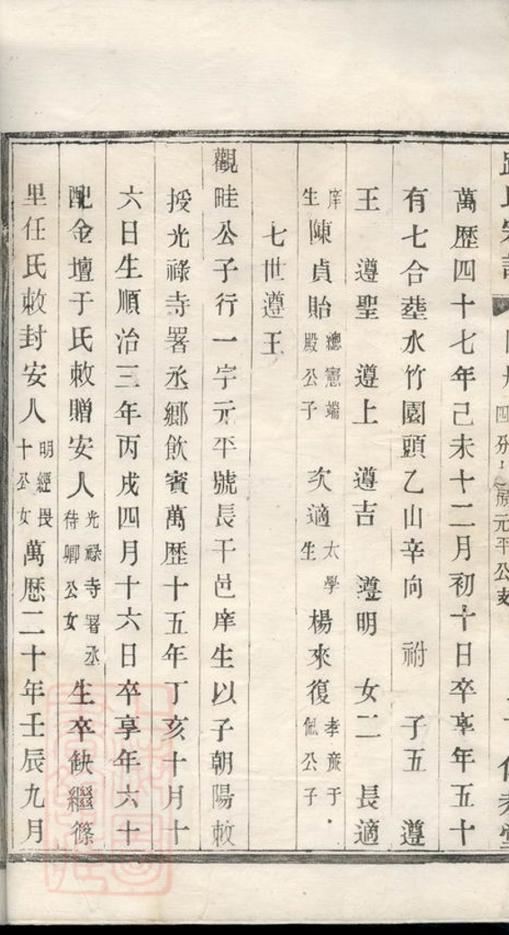 萬歷四十七年己未十二月初十日卒享年五十
有七合塟水竹園頭乙山辛向 祔 子五 遵
王 遵聖 遵上 遵吉 遵明 女二 長適
庠生陳貞貽總憲端殿公子 次適太學生楊來復孝廉于公子
七世遵王
觀畦公子行一字元平號長干邑庠生以子朝陽敕
授光祿寺署丞鄉飲賓萬歷十五年丁亥十月十
六日生順治三年丙戌四月十六日卒享年六十
配金壇于氏敕贈安人光祿寺署丞待卿公女生卒缺繼篠
里任氏敕封安人明經畏十公女萬歷二十年壬辰九月